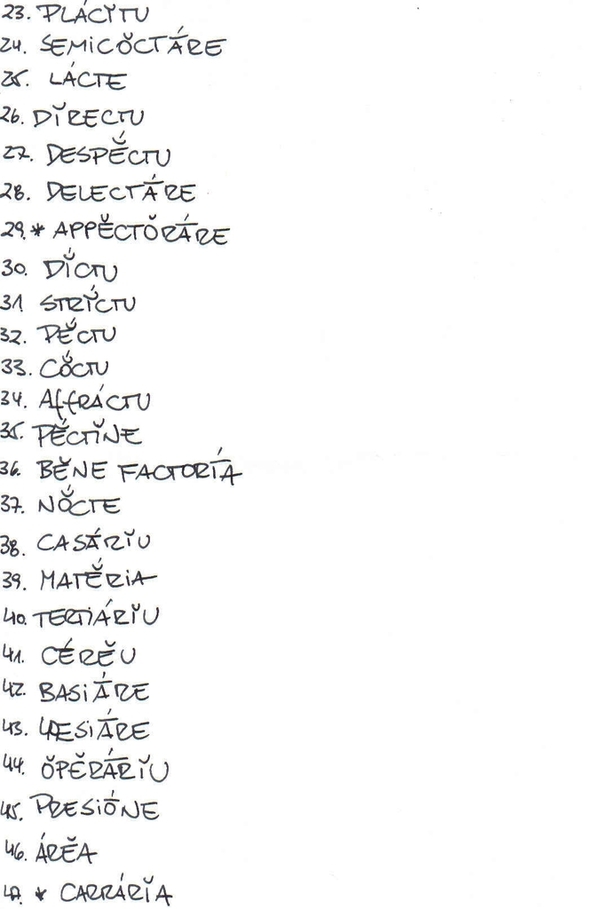 23. PLÁCĬTU
24. SEMICŎCTĀ́RE
25. LÁCTE
26. DĬRECTU
27. DESPĔ́CTU
28. DELECTĀ́RE
29. * APPĔCTŎRĀ́RE
30. DĬ́CTU
31 STRĬ́CTU
32. PĔ́CTU
33. CŎ́CTU
34. AffRÁCTU
35. PĔ́CTĬNE
36. BĔNE FACTORĪ́A
37. NŎ́CTE
38. CASÁRĬU
39. MATĔ́RiA
40. TERTIÁRĬU
41. CÉRĔU
42. BASiĀ́RE
43.
44. ŎPĔRĀ́RĬU
45. PRESiṒNE
46. ÁRĔA
47. * CARRÁRĬA